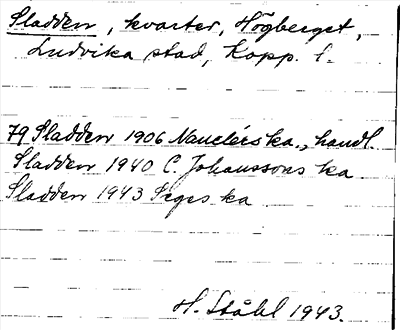 Sladden, kvarter, Högberget,
Ludvika stad, Kopp. l.
79 Sladden 1906 Nauclérska, handl.
Sladden 1940 C. Johanssons ka
Sladden 1943 Seges ka
H. Ståhl 1943.